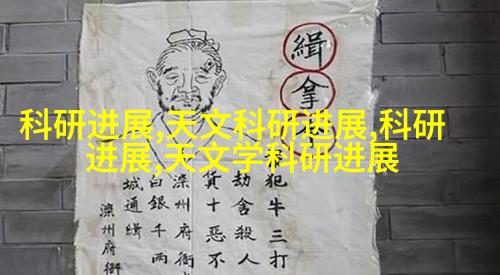 科研进展,天文科研进展,科研
进展,天文学科研进展
緝拿
犯牛三打
劫舍殺人
貨十惡不
滦州府衙
白銀千两
城通緝
滦州府衙